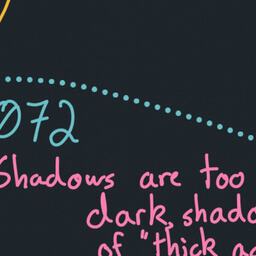 072
Shadows are too
dark, shado
of "thick